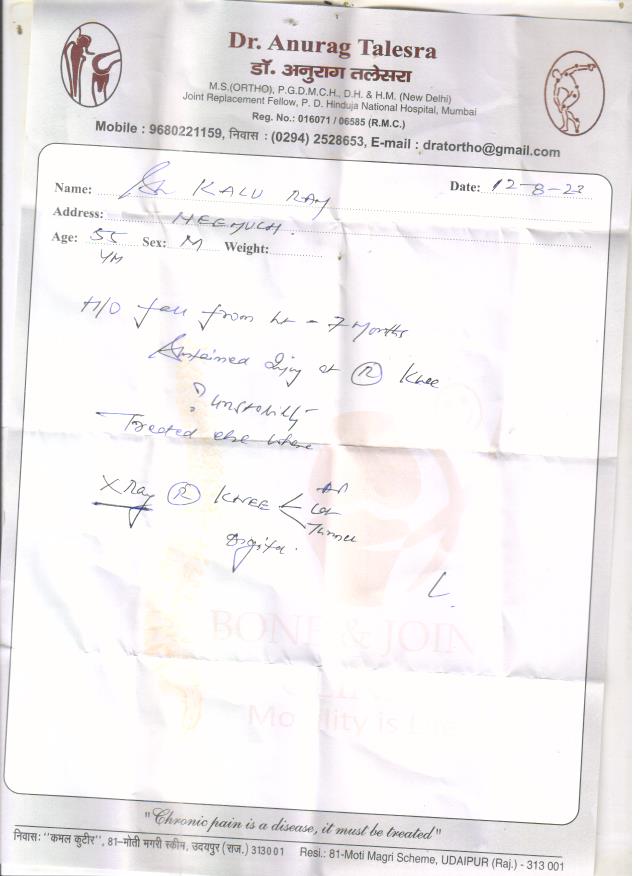 Dr. Anurag Talesra
डॉ. अनुराग तलेसरा
M.S.(ORTHO), P.G.D.M.C.H., D.H. & H.M. (New Delhi)
Joint Replacement Fellow, P. D. Hinduja National Hospital, Mumbai
Reg. No.: 016071 / 06585 (R.M.C.)
Mobile : 9680221159, निवास : (0294) 2528653, E-mail : dratortho@gmail.com
Name: Sh KALU RAM Date: 12-8-23
Address: NEEMUCH.
Age: 55 Sex: M Weight:
H/O fall from - 7 Months
Sustained Injury at (R) Knee
? Unstability
Treated else where
X Ray (R) KNEE AP
Lat
Tunnel
Digital.
BONE & JOIN
Mobility is Life
"Chronic pain is a disease, it must be treated"
निवास: "कमल कुटीर", 81-मोती मगरी स्कीम, उदयपुर (राज.) 313001 Resi.: 81-Moti Magri Scheme, UDAIPUR (Raj.) - 313 001